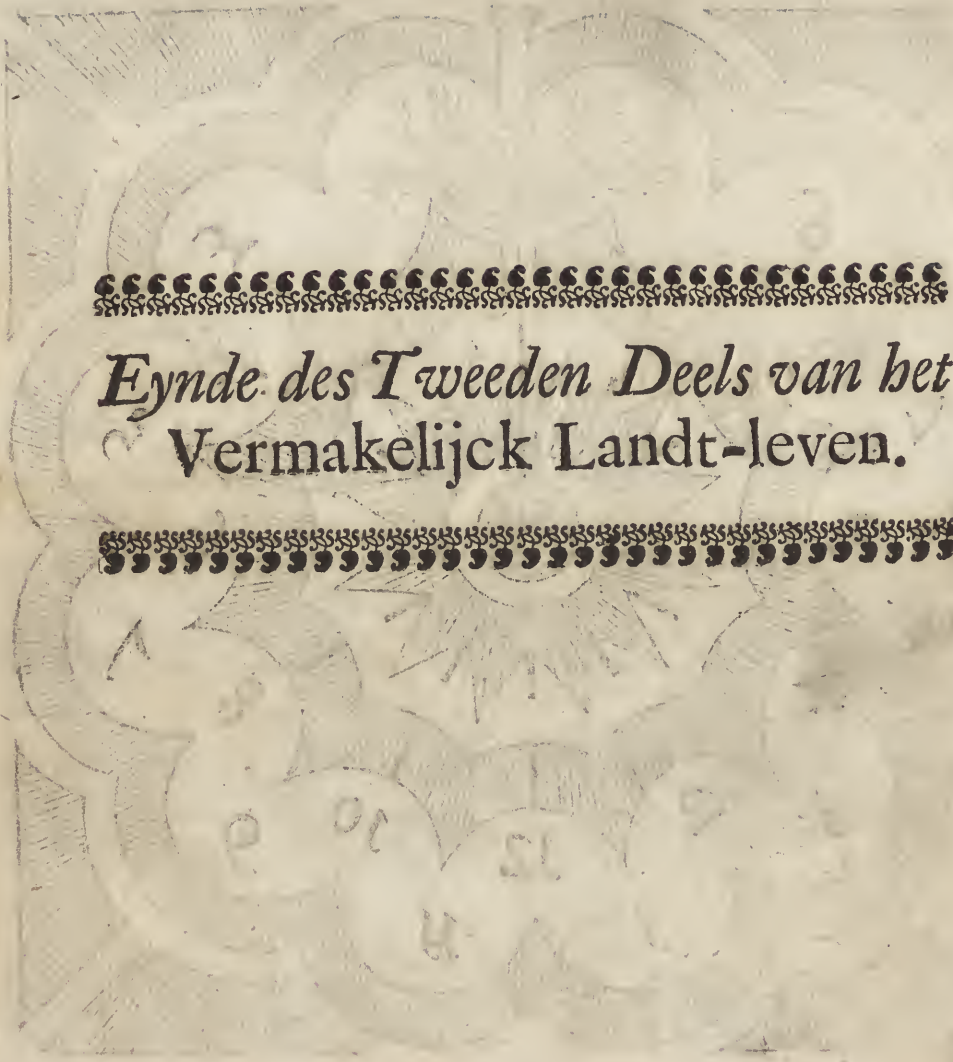 Eynde des Tweeden Deels van het
Vermakelijck Landt-leven.